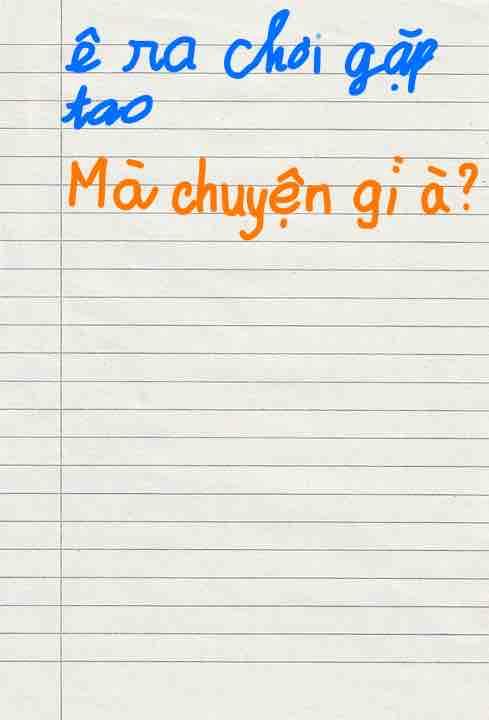 ê ra chơi gặp
tao
Mà chuyện gì à?